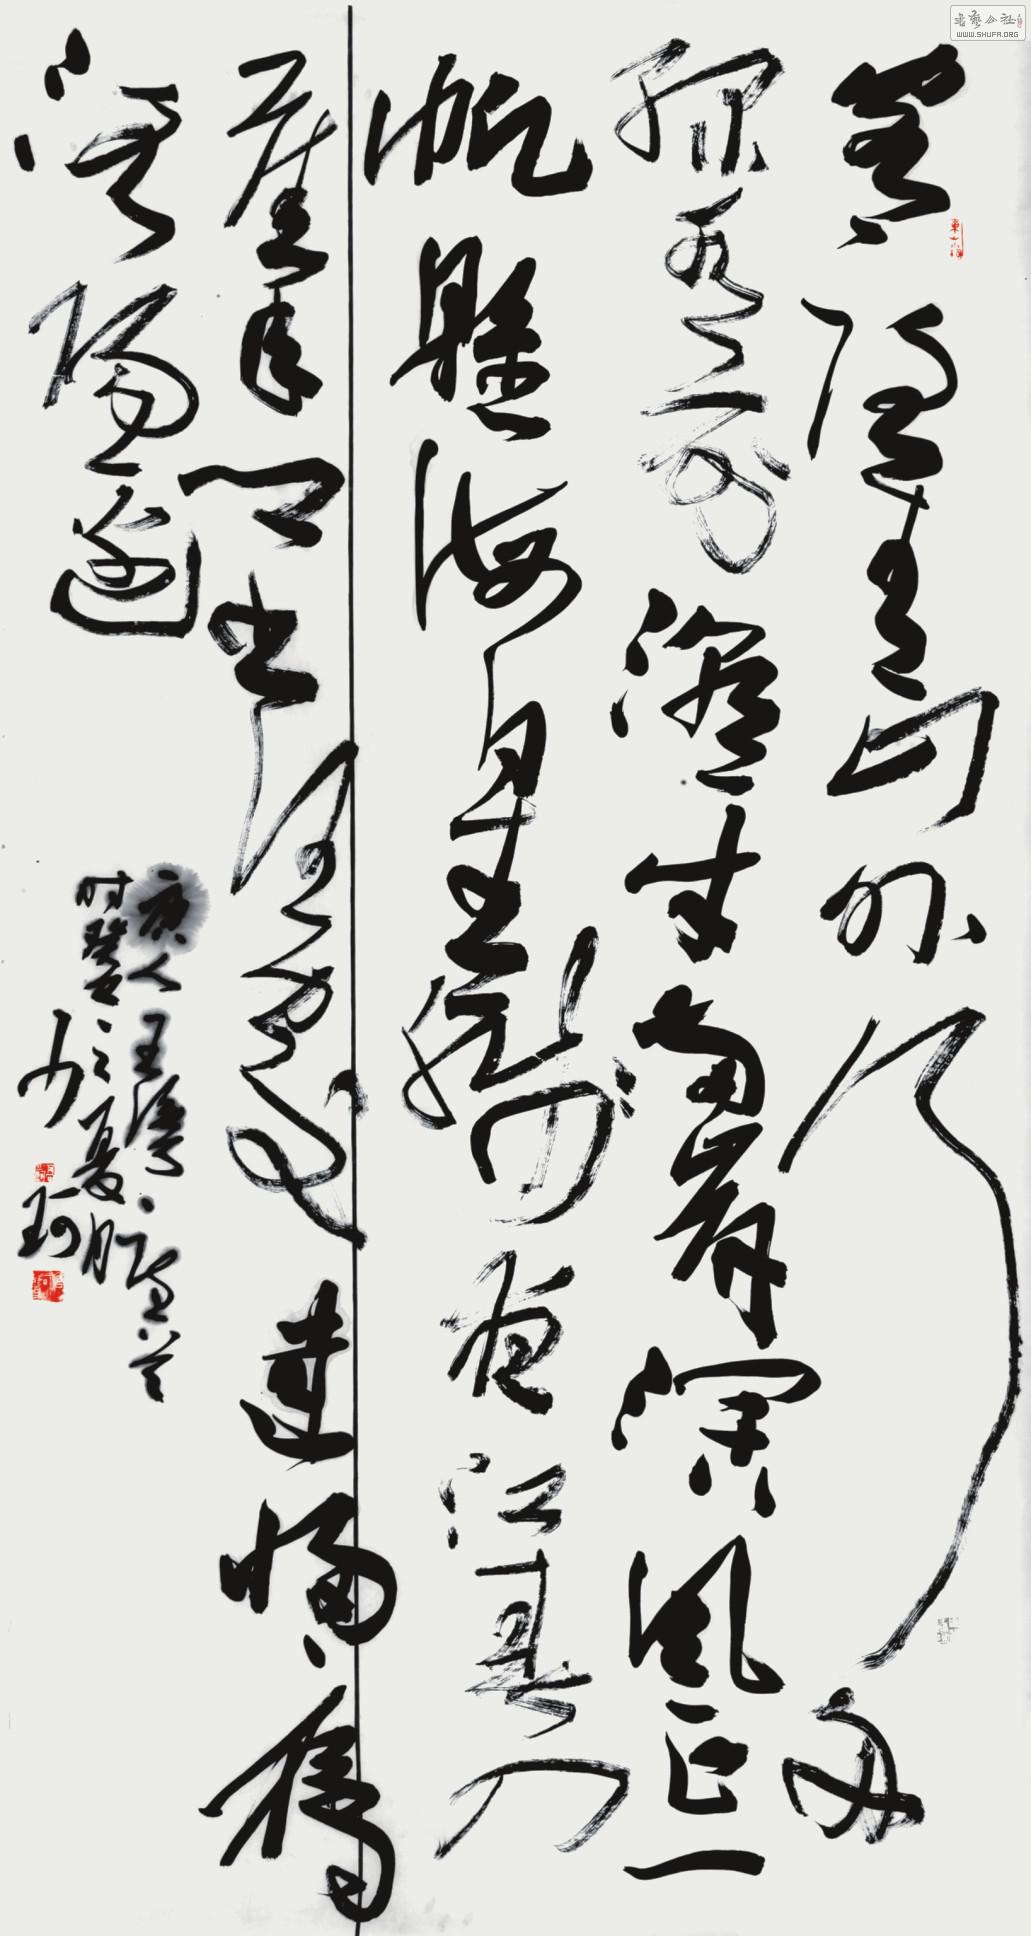 客路青山外行舟
綠水前潮平兩岸闊風正一
帆懸海日生殘夜江春入
舊年鄉書何處達歸雁
洛陽邊
唐人王灣
时癸巳之夏月
少珂
书艺公社
WWW.SHUFA.ORG